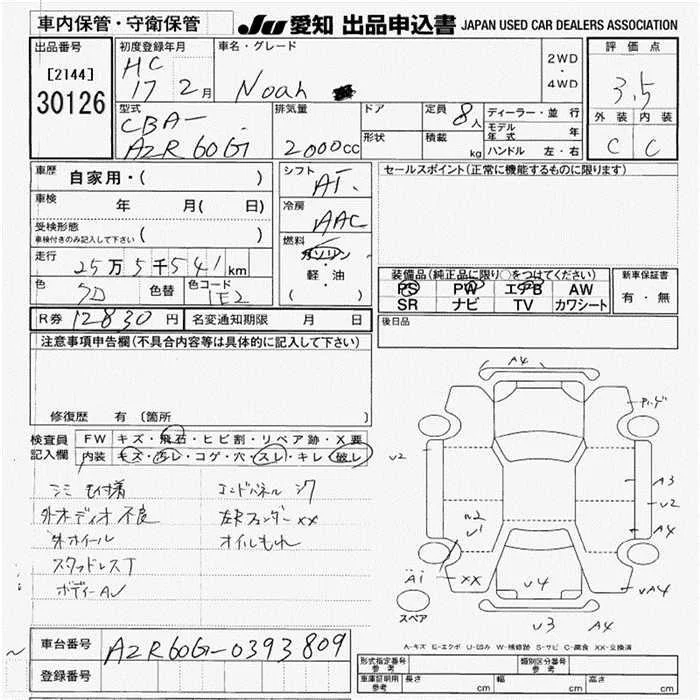 車内保管・守衛保管
JU 愛知 出品申込書 JAPAN USED CAR DEALERS ASSOCIATION
出品番号
[2144]
30126
初度登録年月
HC
17 2月
車名・グレード
Noah
2WD
・
4WD
評価点
3.5
外装 内装
C C
型式
CBA-
AZR60G
排気量
2000cc
ドア
形状
定員 8人
積載 kg
ディーラー・並行
モデル年式 年
ハンドル 左・右
車歴 自家用・( )
車検 年 月( 日)
受検形態
車検付きのみ記入して下さい ( )
走行 25万5千541km
色 色替 色コード 1E2
シフト AT.
冷房 AAC
燃料 ガソリン
・
軽・油
( )
セールスポイント(正常に機能するものに限ります)
装備品(純正品に限り○をつけてください)
PS PW エアB AW
SR ナビ TV カワシート
新車保証書
有・無
R券 12830円 名変通知期限 月 日
後日品
注意事項申告欄(不具合内容等は具体的に記入して下さい)
修復歴 有 〔箇所 〕
検査員記入欄
FW キズ・飛石・ヒビ割・リペア跡・X要
内装 キズ・汚レ・コゲ・穴・スレ・キレ・破レ
シミ 毛付着
外オーディオ不良
外ホイール
スタッドレスT
エンドパネル
左Rフェンダー XX
オイルもれ
A4
U2
A3
U2
A4
U2
U1
A1
XX
U4
UA4
スペア
U3 A4
A-キズ E-エクボ U-凹み W-補修跡 S-サビ C-腐食 XX-交換済
車台番号 AZR60G-0393809
登録番号
形式指定番号 参考
類別区分番号 参考
車庫証明用 参考 長さ cm 幅 cm 高さ cm